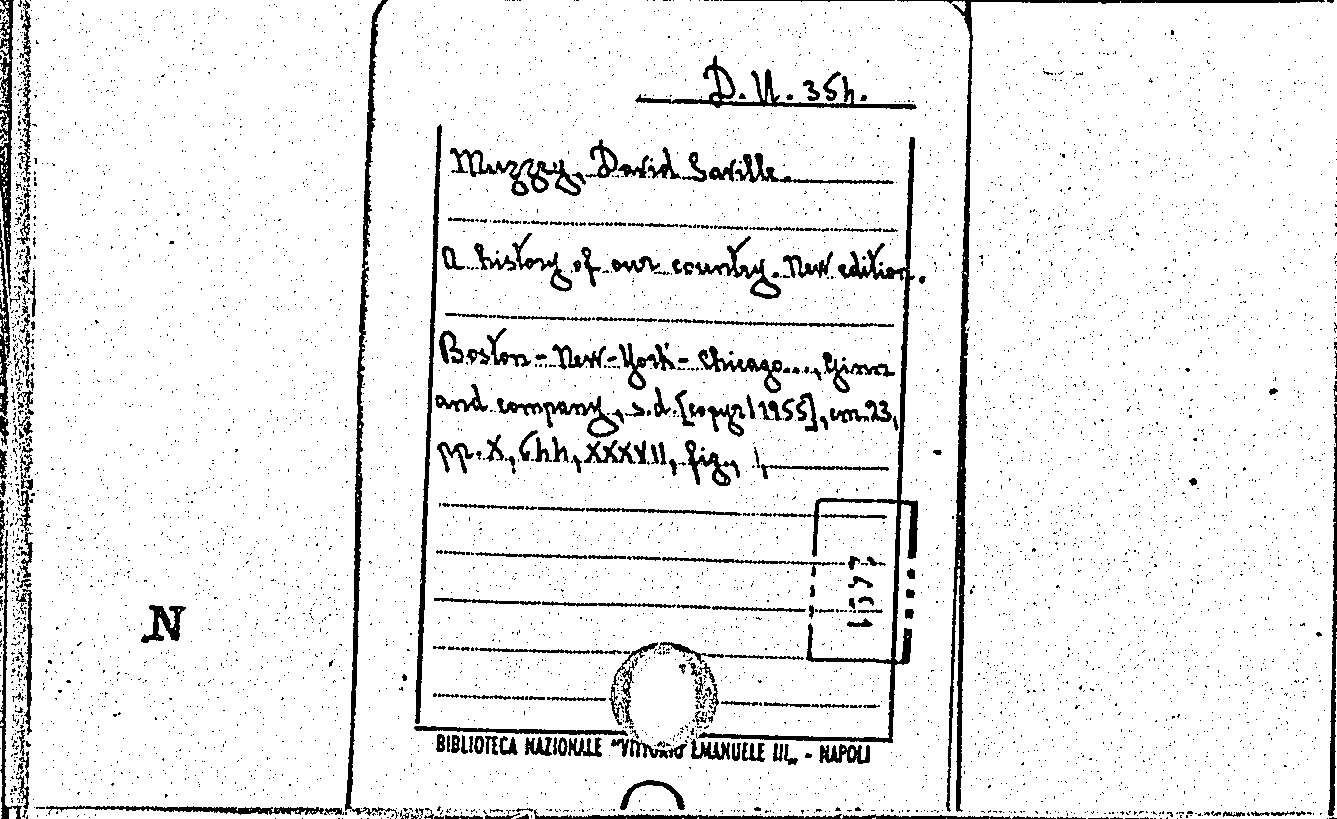 D. U. 354.
Muzzey, David Saville.
A history of our country. New edition.
Boston - New-York - Chicago..., Ginn
and company, s.d. [copyr/1955], cm.23,
pp. X, 644, XXXVII, fig.,
N
BIBLIOTECA NAZIONALE "VITTORIO EMANUELE III„ - NAPOLI